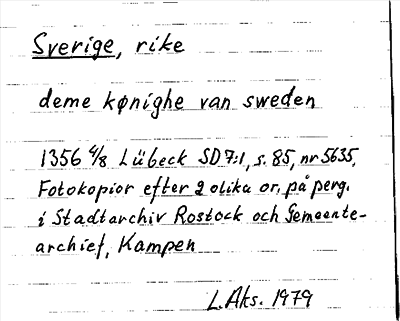 Sverige, rike
deme kønighe van sweden
1356 4/8 Lübeck SD 7:1, s. 85, nr 5635,
Fotokopior efter 2 olika or. på perg.
i Stadtarchiv Rostock och Gemeente-
archief, Kampen
L. Aks. 1979